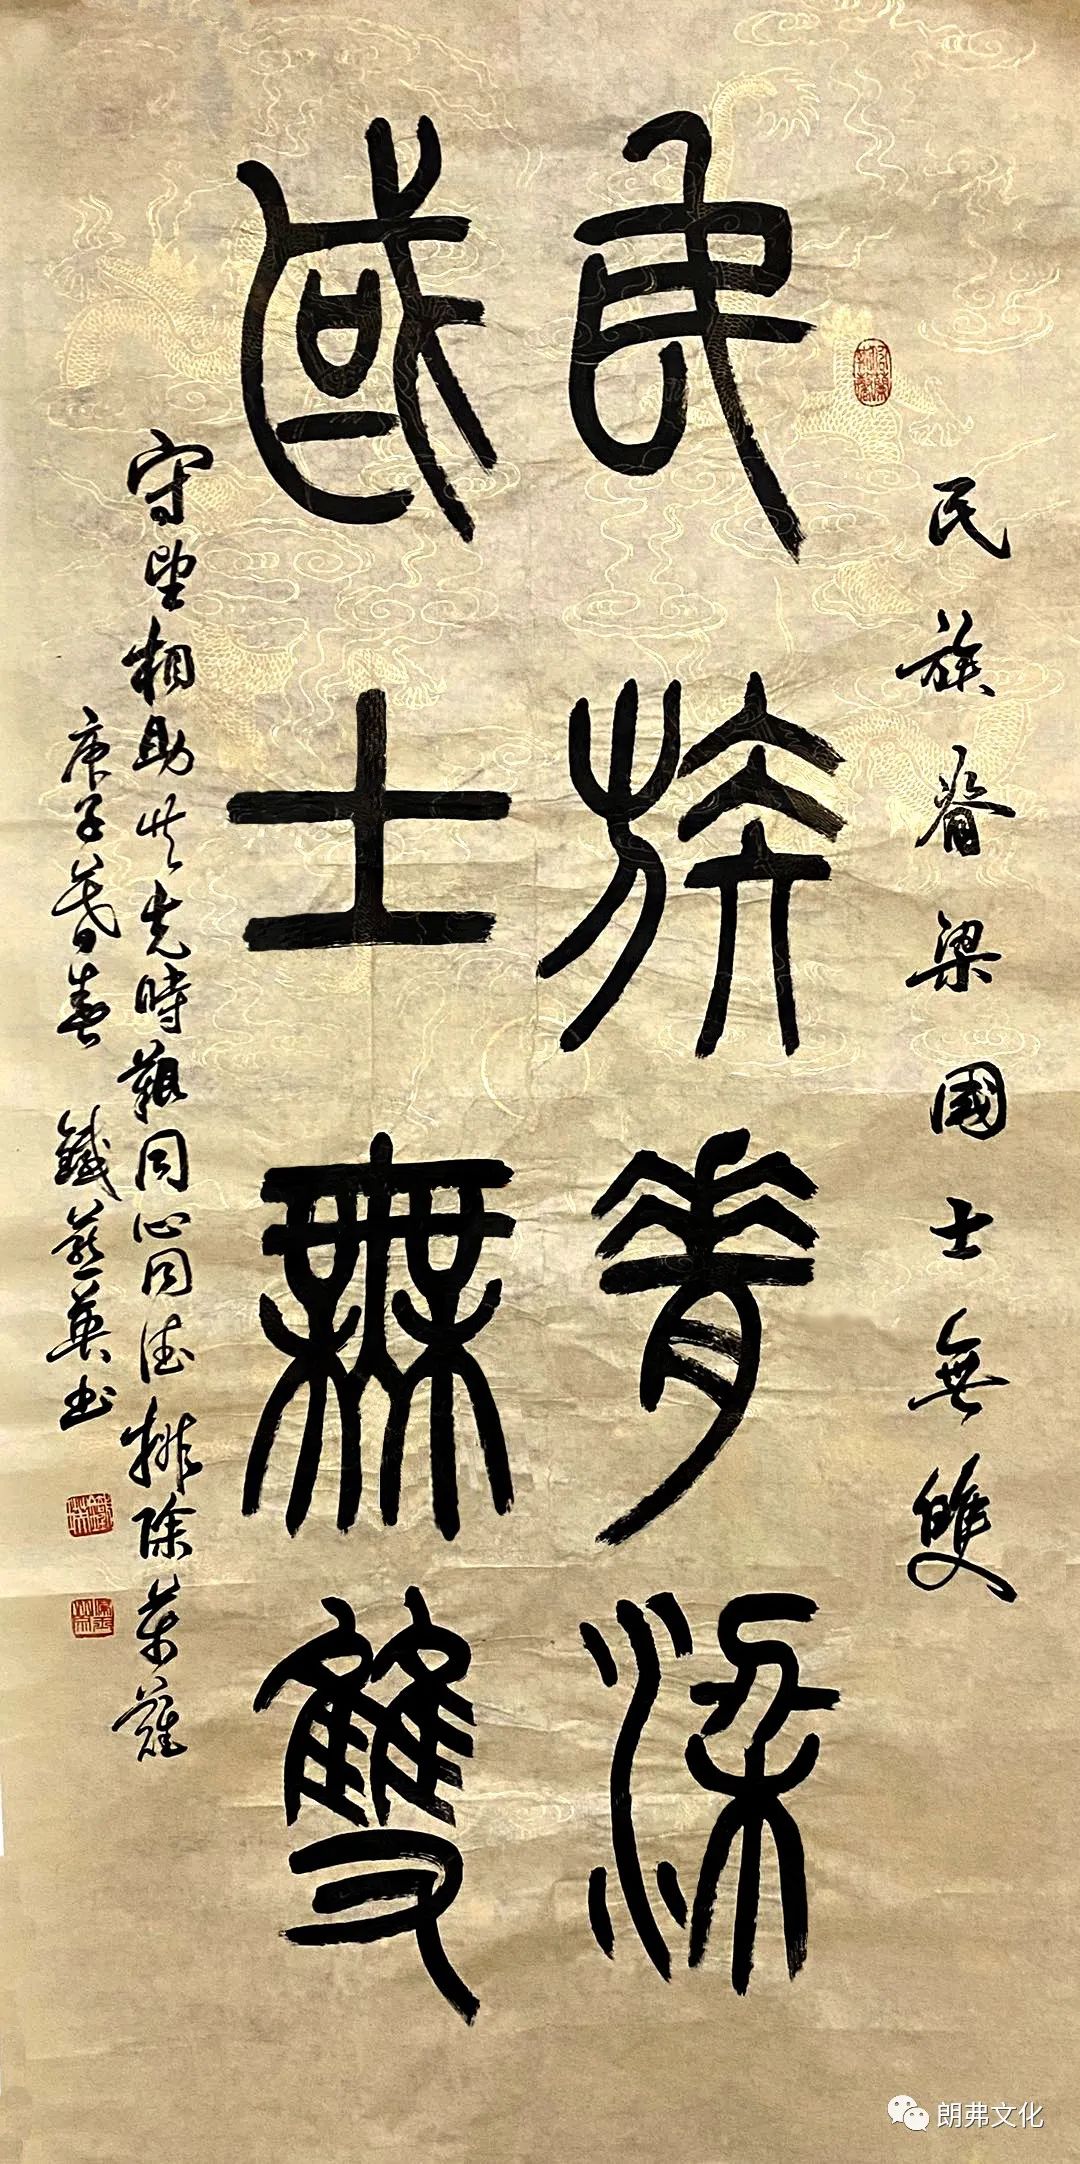 民族脊梁國士無雙
民族脊梁
國士無雙
守望相助共克時艱同心同德排除萬難
庚子暮春 鐵英书
朗弗文化